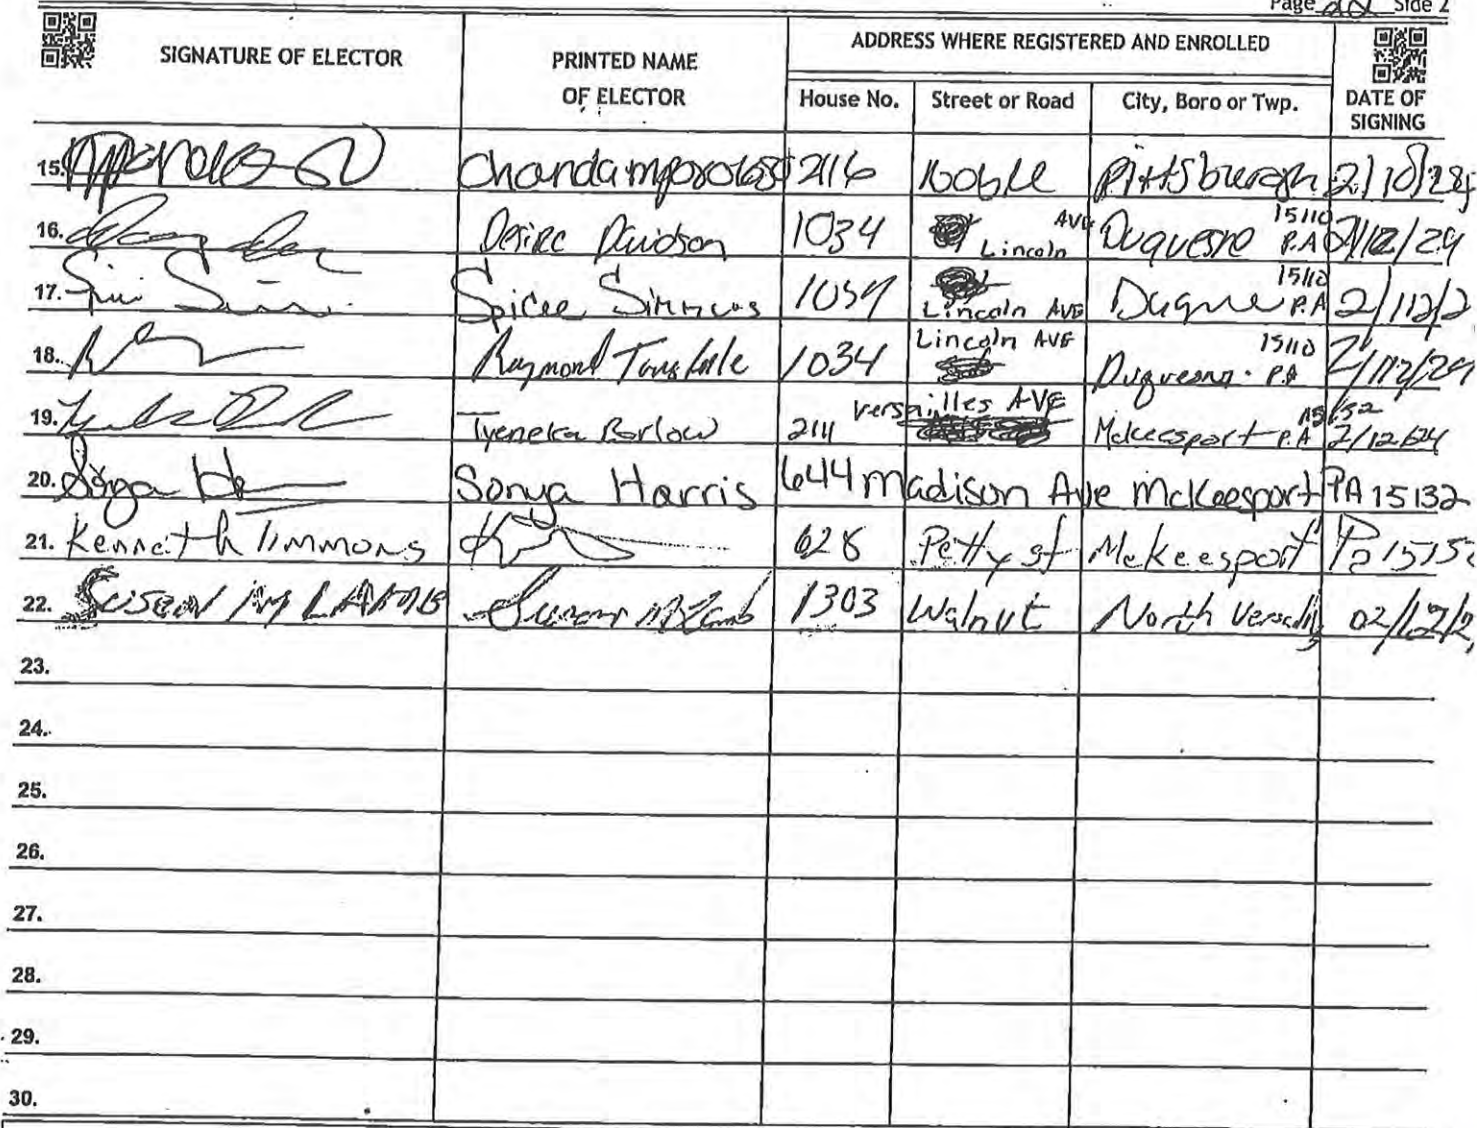 Page 22 Side 2
SIGNATURE OF ELECTOR PRINTED NAME OF ELECTOR ADDRESS WHERE REGISTERED AND ENROLLED DATE OF SIGNING
House No. Street or Road City, Boro or Twp.
15. 2116 Noble Pittsburgh 2/10/24
16. Desire Davidson 1034 Lincoln AVE Duquesne P.A 15110 2/12/24
17. Simmons Lincoln AVE P.A 15110 2/12/2
18. Raymond 1034 Lincoln AVE Duquesne P.A 15110 2/12/24
19. Tyeneka Barlow 2111 versailles AVE Mckeesport P.A 2/12/24
20. Sonya Harris 644 Madison Ave McKeesport PA 15132
21. Kenneth Timmons 628 Petty st Mckeesport Pa
22. SUSAN M LAMB Susan M Lamb 1303 Walnut North Versailles 02/12/2
23.
24.
25.
26.
27.
28.
29.
30.